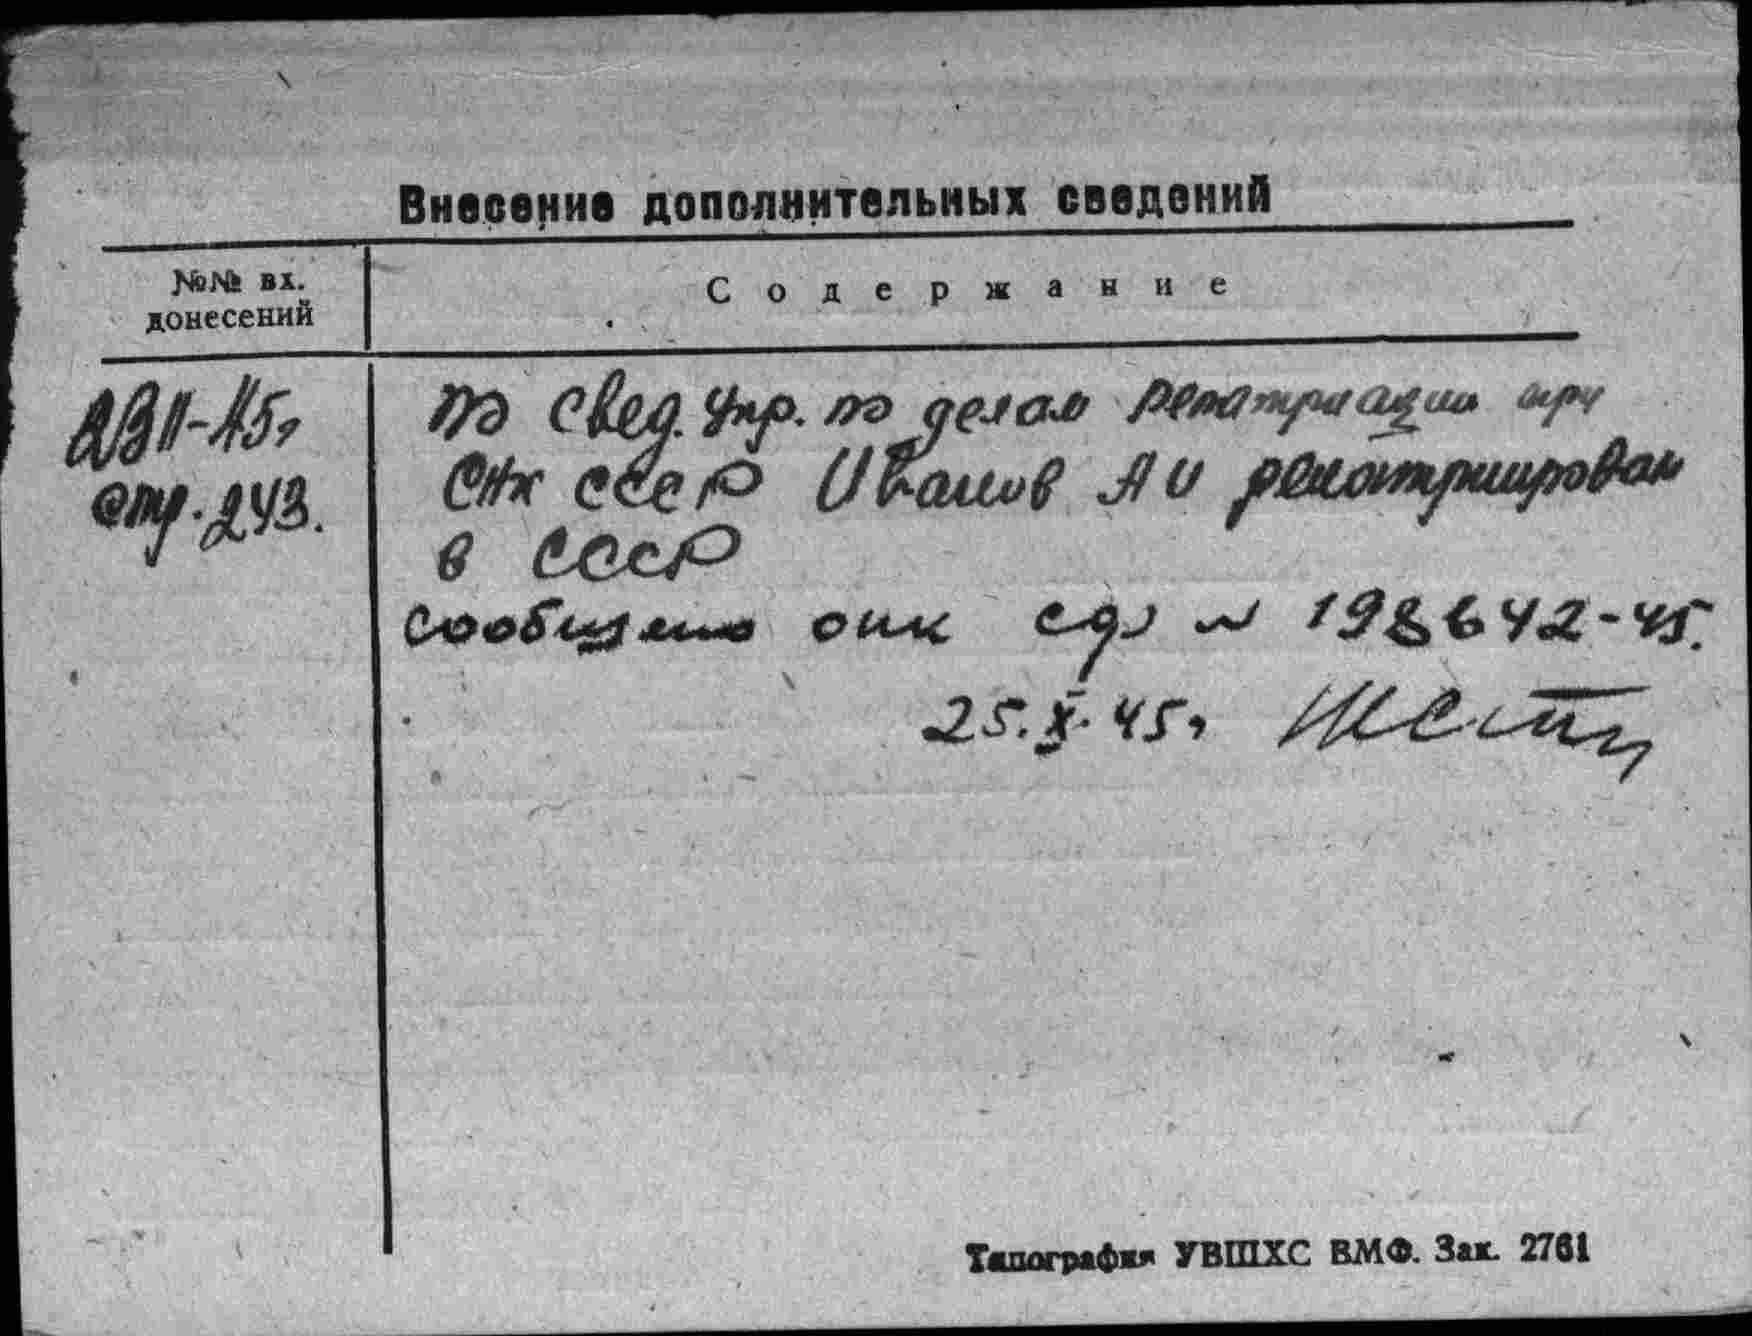 Внесение дополнительных сведений
№№ вх.
донесений
Содержание
стр. 243.
По свед. Упр. по делам репатриации при
СНК СССР Иванов А И репатриирован
в СССР
Сообщено 198642-45.
25.X.45г
Типография УВШХС ВМФ. Зак. 2761